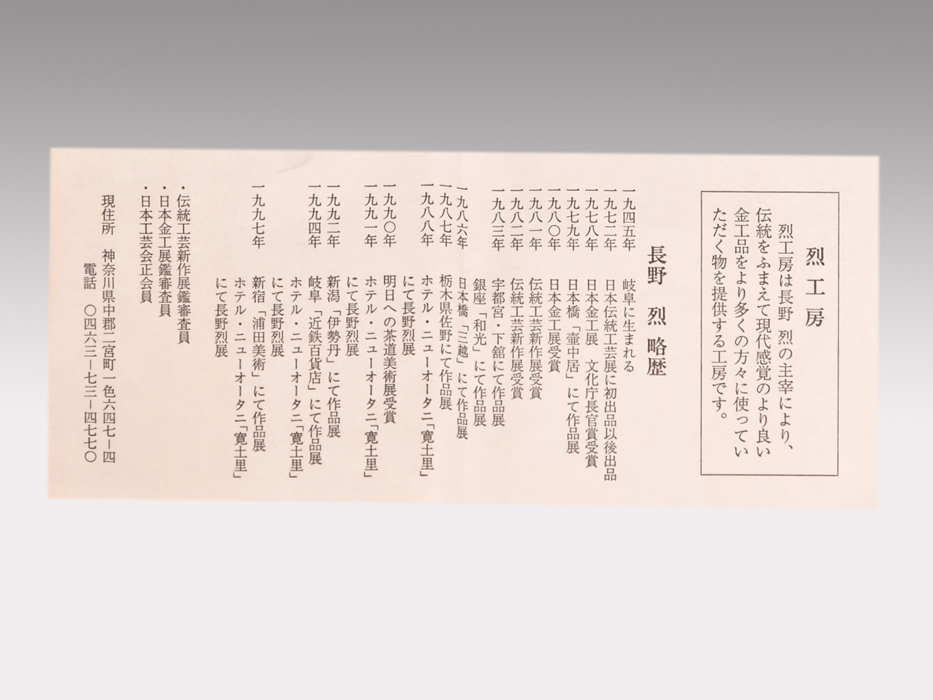 烈工房
烈工房は長野 烈の主宰により、
伝統をふまえて現代感覚のより良い
金工品をより多くの方々に使ってい
ただく物を提供する工房です。
長野 烈 略歴
一九四五年 岐阜に生まれる
一九七二年 日本伝統工芸展に初出品以後出品
一九七八年 日本金工展 文化庁長官賞受賞
一九七九年 日本橋「壷中居」にて作品展
一九八〇年 日本金工展受賞
一九八一年 伝統工芸新作展受賞
一九八二年 伝統工芸新作展受賞
一九八三年 宇都宮・下舘にて作品展
銀座「和光」にて作品展
一九八六年 日本橋「三越」にて作品展
一九八七年 栃木県佐野にて作品展
一九八八年 ホテル・ニューオータニ「寛土里」
にて長野烈展
一九九〇年 明日への茶道美術展受賞
一九九一年 ホテル・ニューオータニ「寛土里」
にて長野烈展
一九九二年 新潟「伊勢丹」にて作品展
一九九四年 岐阜「近鉄百貨店」にて作品展
ホテル・ニューオータニ「寛土里」
にて長野烈展
一九九七年 新宿「浦田美術」にて作品展
ホテル・ニューオータニ「寛土里」
にて長野烈展
・伝統工芸新作展鑑審査員
・日本金工展鑑審査員
・日本工芸会正会員
現住所 神奈川県中郡二宮町一色六四七−四
電話 〇四六三−七三−四七七〇